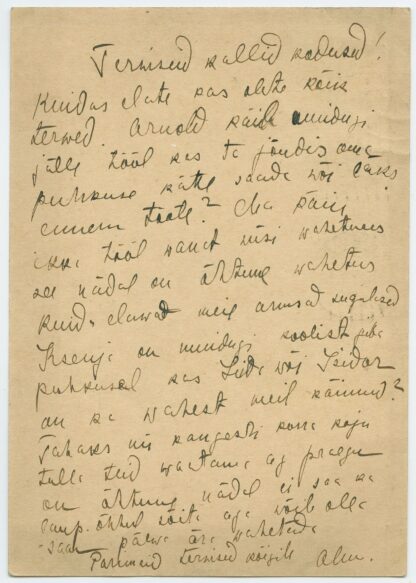 Terwised kallid kodused!
Kuidas elate kas olete kõik
terwed. Arnold käib muidugi
jälle tööl kas ta jõudis oma
puhkuse kätte saada wõi läks
ennem tööle? Ma käin
ikka tööl wanat wiisi wahetuses
see nädal on õhtune wahetus
kuid. elawad meil armsad sugulased
Ksenja on muidugi koolist juba
puhkusel kas Leida wõi Isidor
on ka wahest meil käinud?
Tahaks nii kangesti korra koju
tulla teid waatama aga praegu
on õhtune nädal ei saa ka
laup. õhtul sõita aga wõib olla
saan päewa ära wahetada
Parimaid terwised kõigile